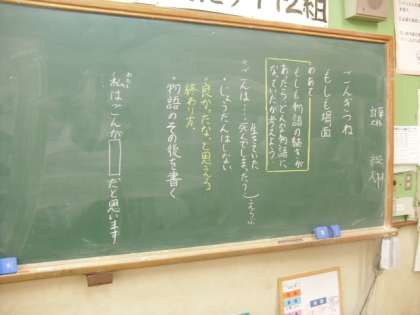 ごんぎつね
もしも場面
めあて
もしも物語の続きが
あったら、どんな物語に
なっていたか考えよう。
ごんは…
生きていた
死んでしまった
・じょうだんはしない
・良かったな、と思うような
終わり方。
・物語のその後を書く
私はごんが
だと思います